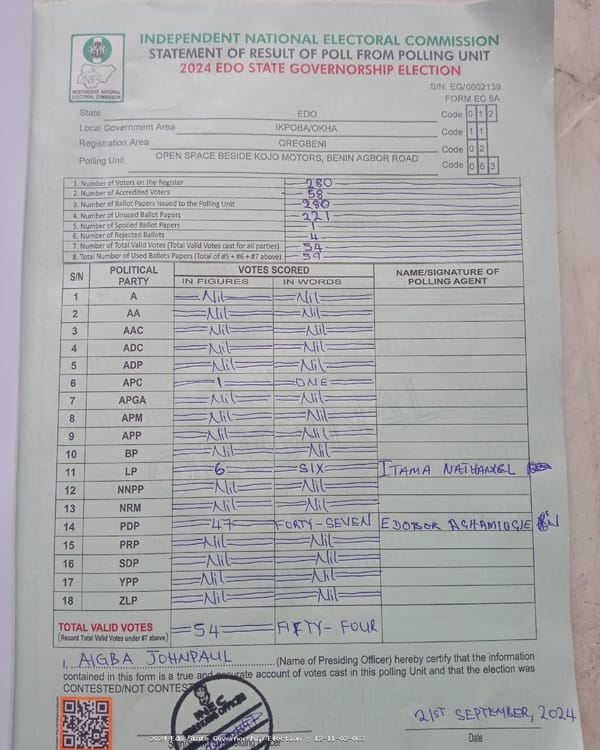 INDEPENDENT NATIONAL ELECTORAL COMMISSION
STATEMENT OF RESULT OF POLL FROM POLLING UNIT
2024 EDO STATE GOVERNORSHIP ELECTION
INEC
INDEPENDENT NATIONAL
ELECTORAL COMMISSION
S/N: EG/0002139
FORM EC 8A
State EDO Code 0 1 2
Local Government Area IKPOBA/OKHA Code 1 1
Registration Area OREGBENI Code 0 2
Polling Unit OPEN SPACE BESIDE KOJO MOTORS, BENIN AGBOR ROAD Code 0 6 3
1. Number of Voters on the Register 280
2. Number of Accredited Voters 58
3. Number of Ballot Papers Issued to the Polling Unit 280
4. Number of Unused Ballot Papers 221
5. Number of Spoiled Ballot Papers 1
6. Number of Rejected Ballots 4
7. Number of Total Valid Votes (Total Valid Votes cast for all parties) 54
8. Total Number of Used Ballots Papers (Total of #5 + #6 + #7 above) 59
S/N POLITICAL PARTY VOTES SCORED NAME/SIGNATURE OF POLLING AGENT
IN FIGURES IN WORDS
1 A Nil Nil
2 AA Nil Nil
3 AAC Nil Nil
4 ADC Nil Nil
5 ADP Nil Nil
6 APC 1 ONE
7 APGA Nil Nil
8 APM Nil Nil
9 APP Nil Nil
10 BP Nil Nil
11 LP 6 SIX ITAMA NATHANIEL
12 NNPP Nil Nil
13 NRM Nil Nil
14 PDP 47 FORTY-SEVEN EDOBOR AGHAMIOGIE
15 PRP Nil Nil
16 SDP Nil Nil
17 YPP Nil Nil
18 ZLP Nil Nil
TOTAL VALID VOTES 54 FIFTY-FOUR
(Record Total Valid Votes under #7 above)
I, AIGBA JOHNPAUL (Name of Presiding Officer) hereby certify that the information
contained in this form is a true and accurate account of votes cast in this polling Unit and that the election was
CONTESTED/NOT CONTESTED
INEC
21ST SEPTEMBER, 2024
2024 Edo State Governorship Election : 12-11-02-063
Date